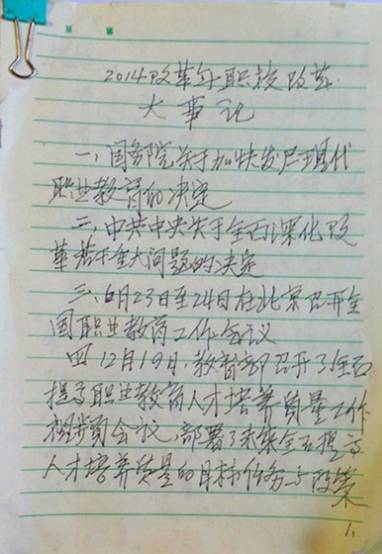 2014改革年职教改革
大事记
一、国务院关于加快发展现代
职业教育的决定
二、中共中央关于全面深化改
革若干重大问题的决定
三、6月23日至24日在北京召开全
国职业教育工作会议
四 12月19日,教育部召开了全面
提高职业教育人才培养质量工作
视频会议,部署了未来全面提高
人才培养质量的目标任务与政策
1、